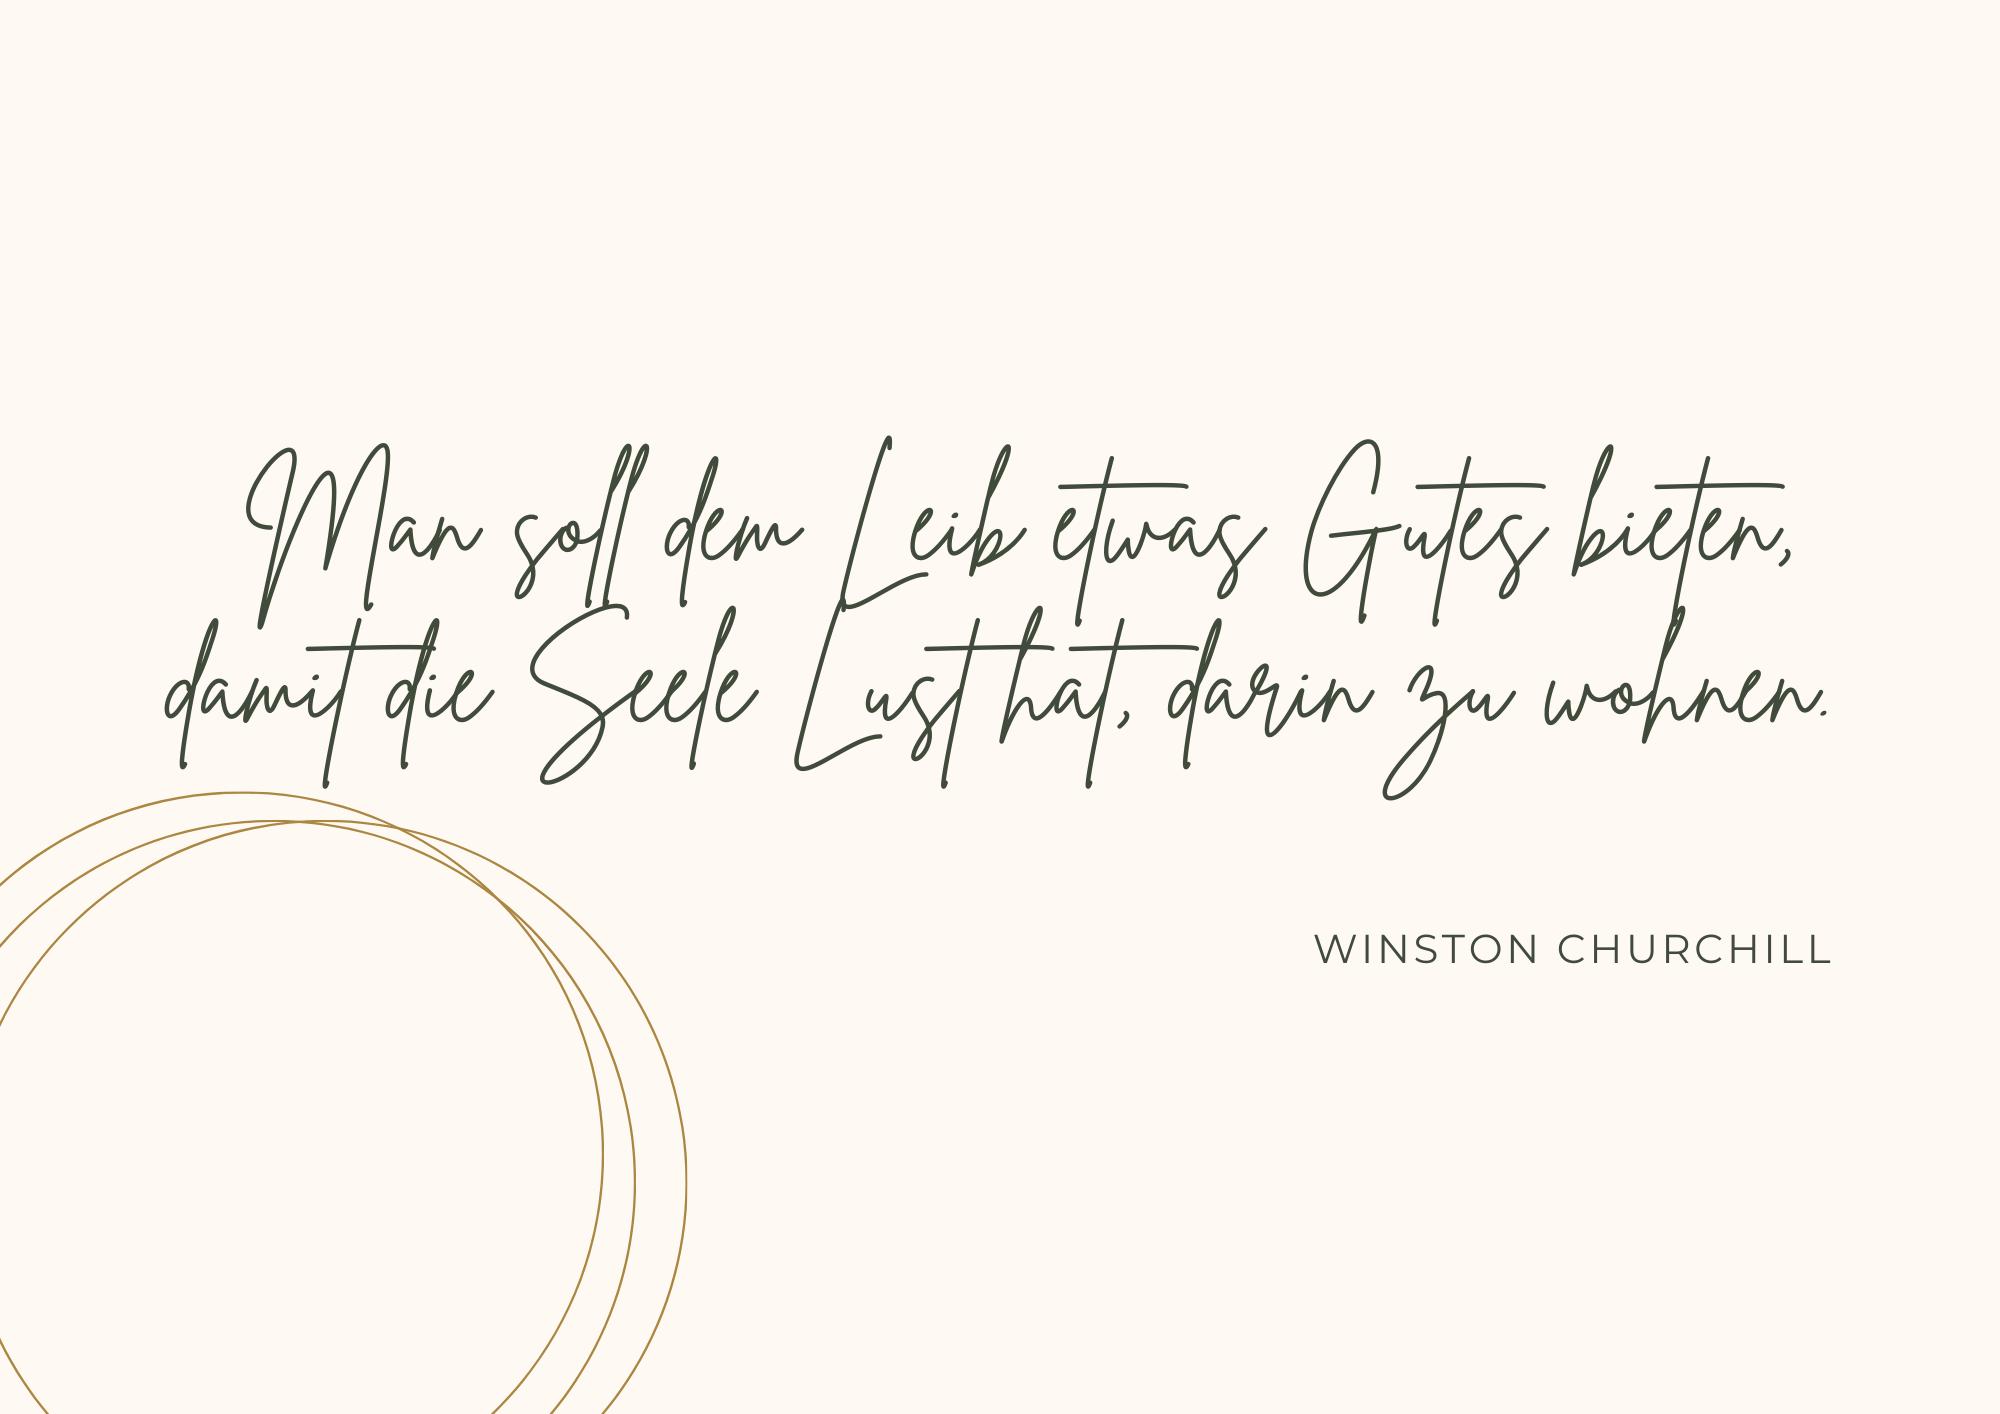 Man soll dem Leib etwas Gutes bieten,
damit die Seele Lust hat, darin zu wohnen.
WINSTON CHURCHILL